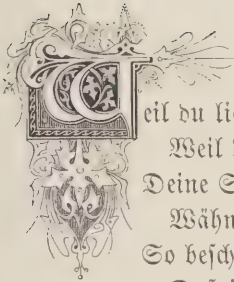 Weil du li
Weil
Deine S
Wähn
So besch